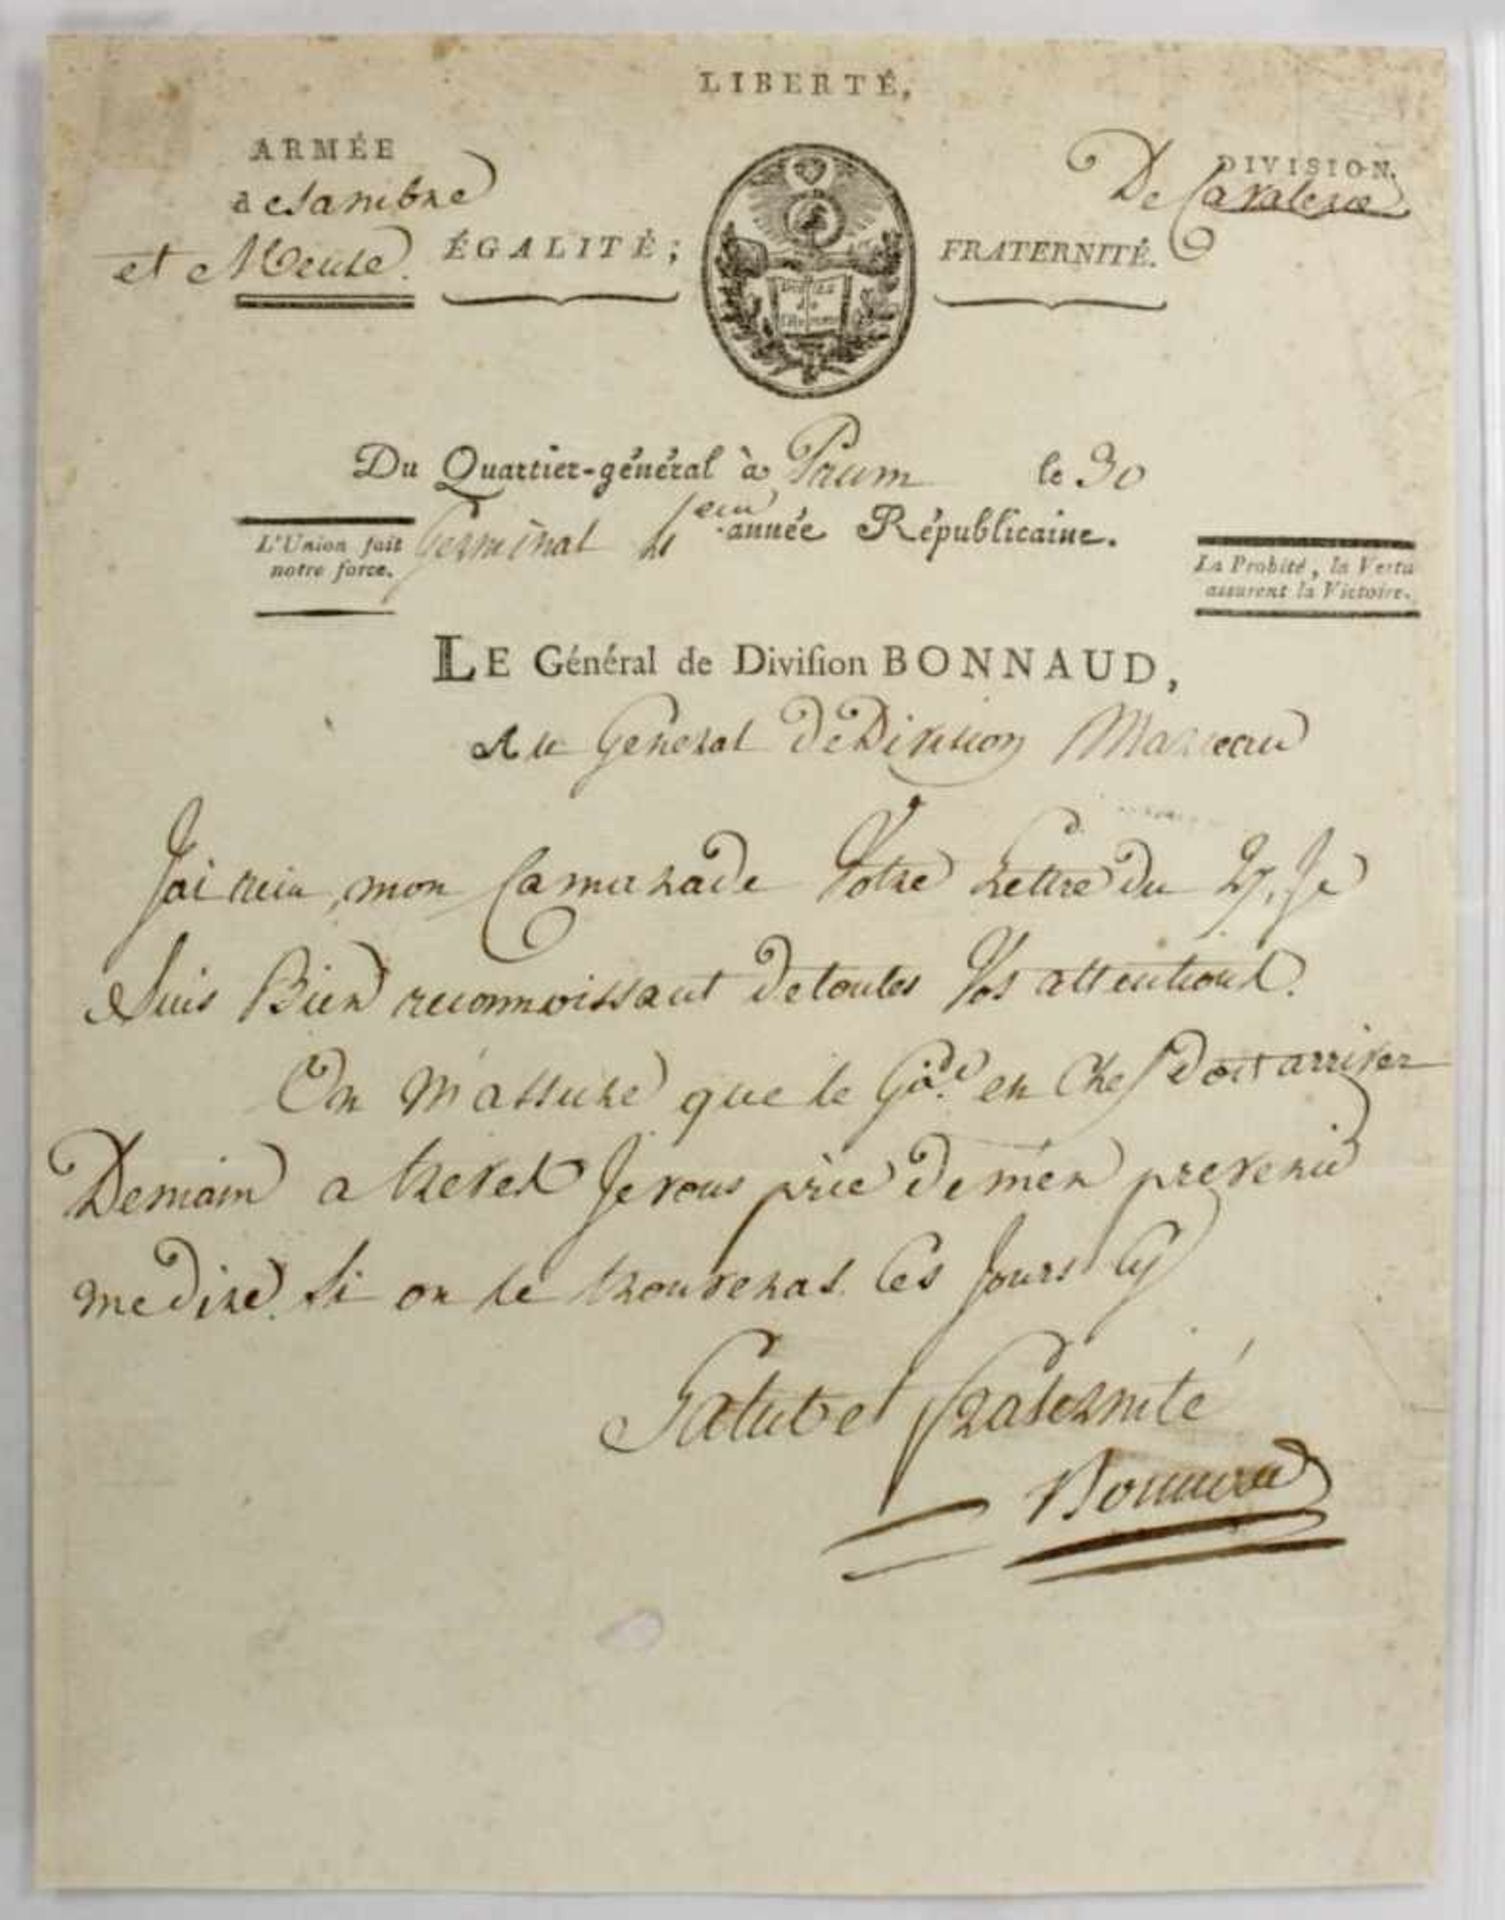 LIBERTÉ,
ARMÉE
de Sambre
et Meuse.
DIVISION.
De Cavalerie
ÉGALITÉ;
FRATERNITÉ.
Droits
de
l'Homme
Du Quartier-général à Prum le 30
Germinal 4eme année Républicaine.
L'Union fait
notre force.
La Probité, la Vertu
assurent la Victoire.
LE Général de Division BONNAUD,
Au General De Division Marceau
Jai reçu, mon Camarade Votre Lettre Du 27, Je
Suis Bien reconnoissant de toutes Vos attentions.
On M'assure que le Gñal en Chef doit arriver
Demain a treves Je vous prie de m'en prevenir
me dire Si on le trouveras Ces Jours Cy
Salut et fraternité
Bonnaud